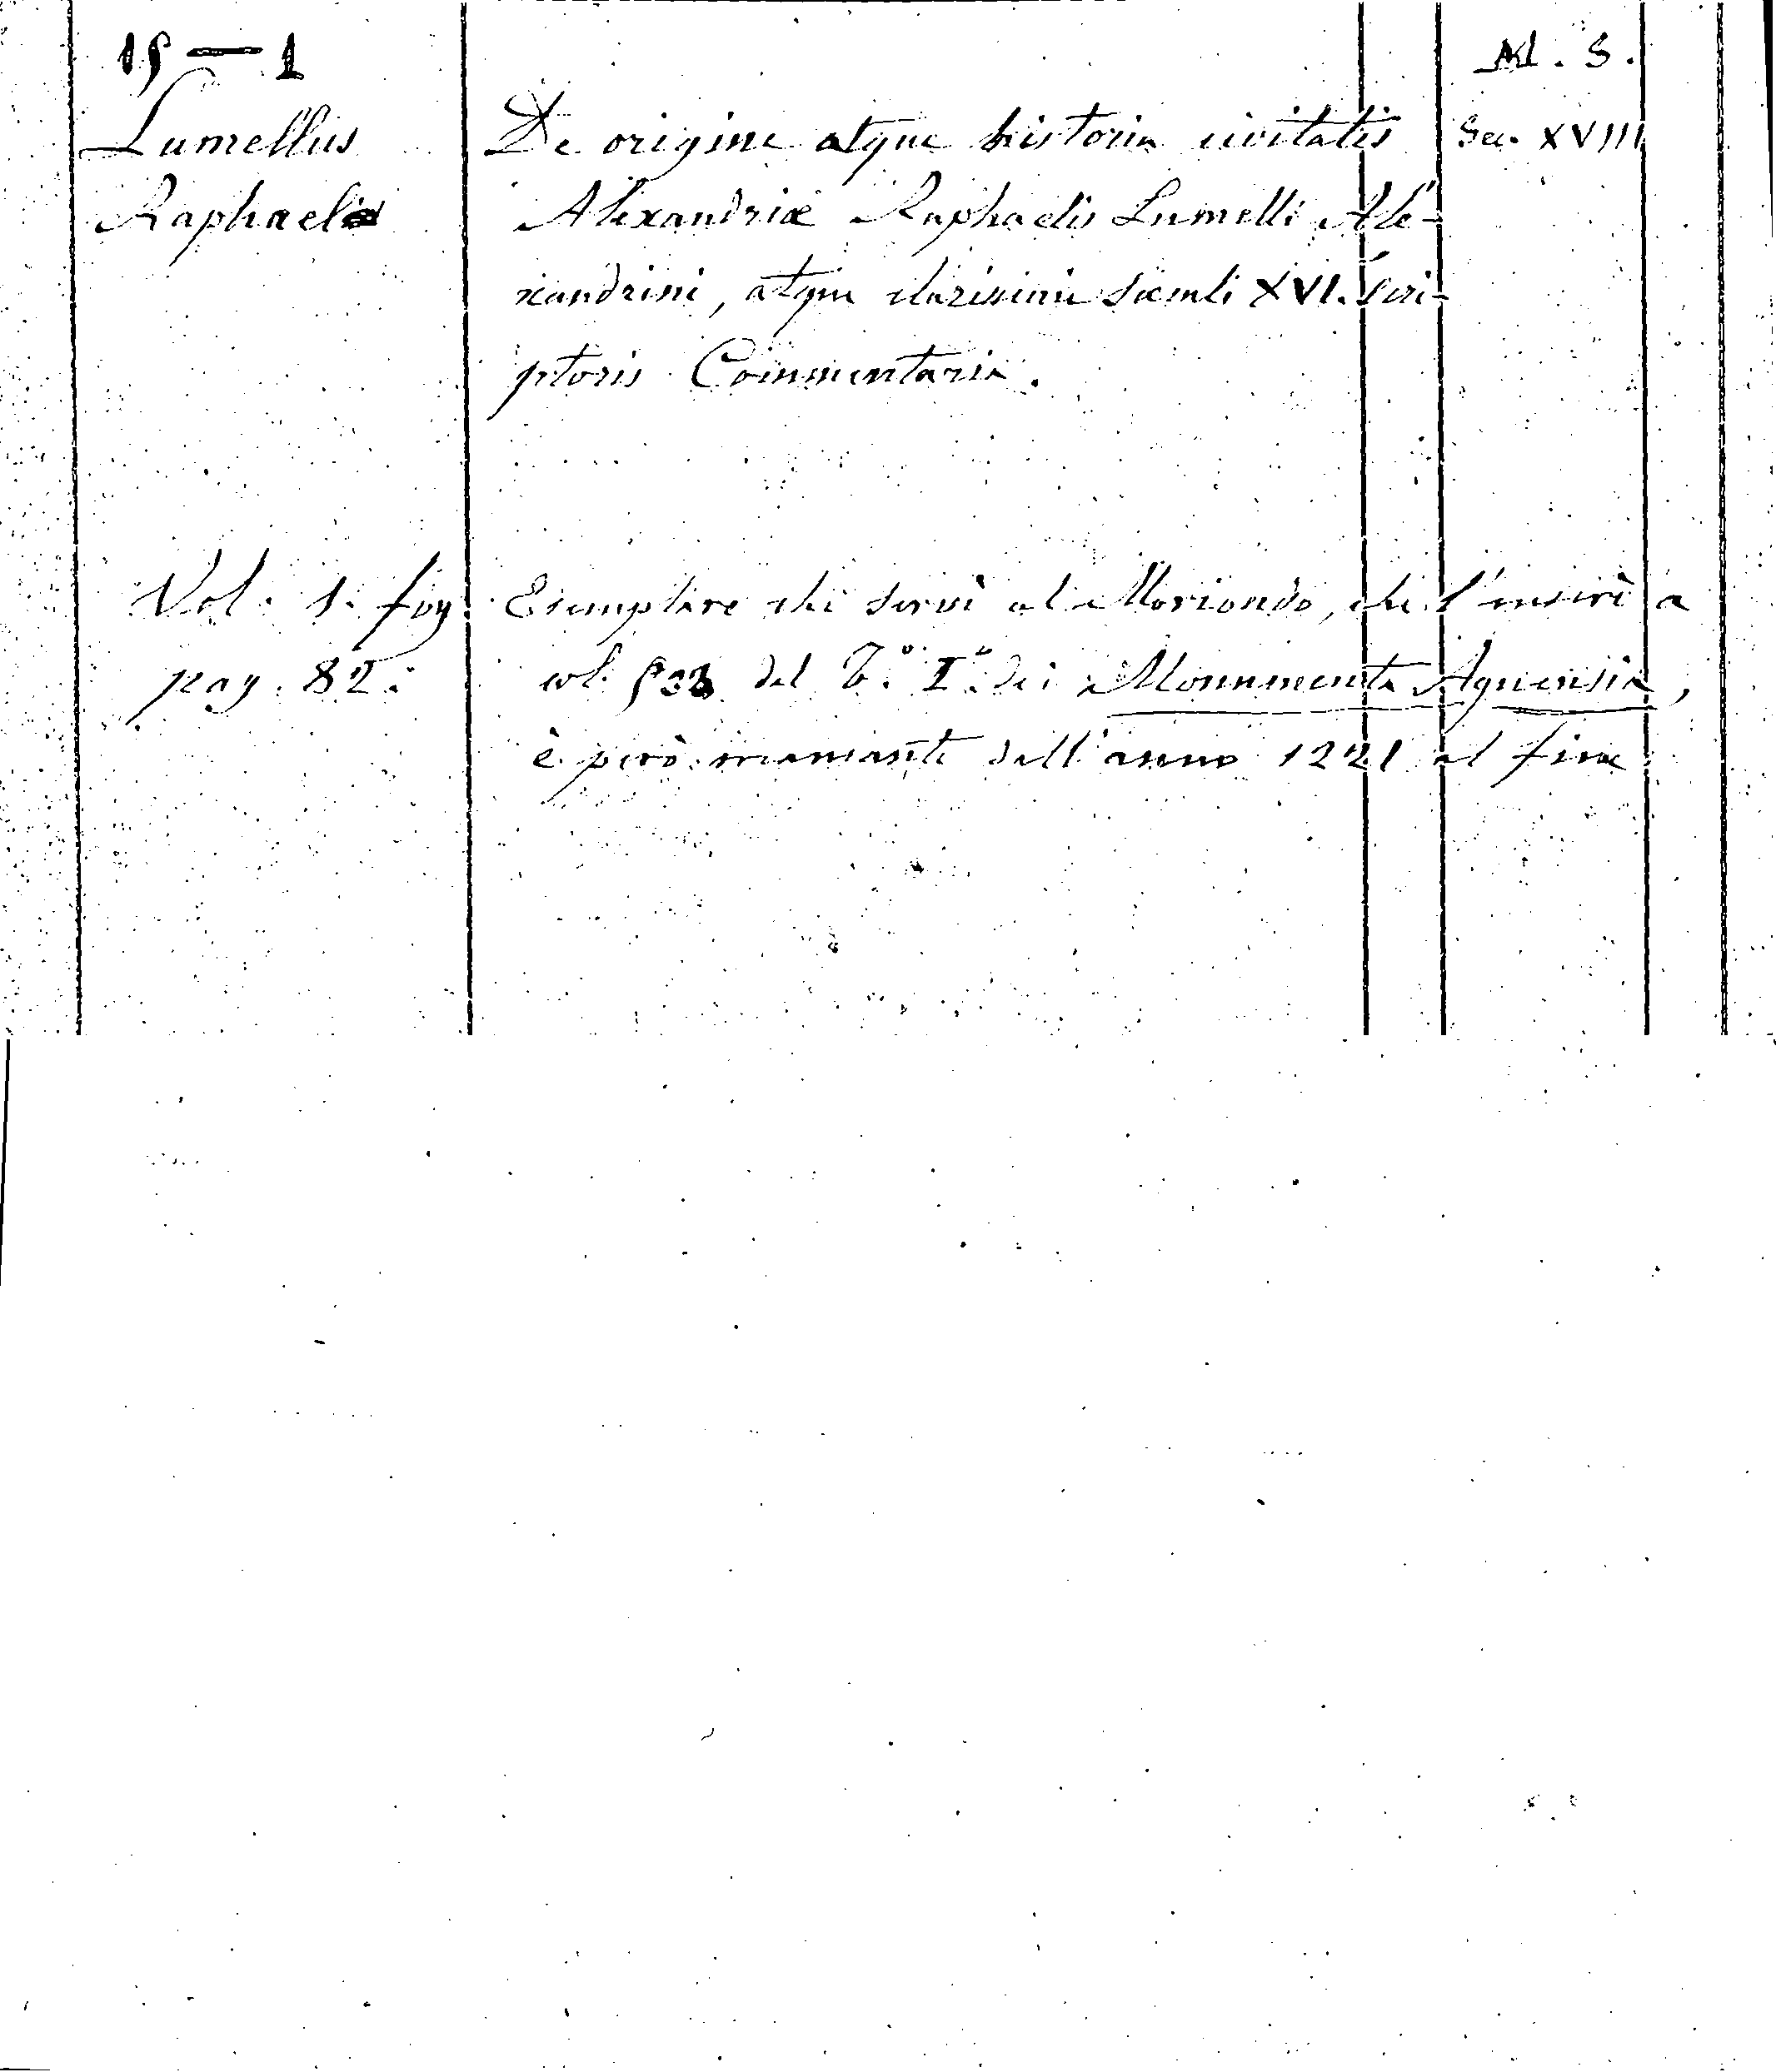 15 — 1
M. S.
Lumellus
Raphael
De origine atque historia civitatis
Alexandriæ Raphaelis Lumelli Ale-
xandrini, atque clarissimi sæculi XVI. Scri-
ptoris Commentaria.
Sec. XVIII
Vol. 1. fog.
pag. 82.
Esemplare che servì al Moriondo, che l'inserì a
col. del T.º I.º dei Monumenta Aquensia,
è però mancante dell'anno 1221 al fine